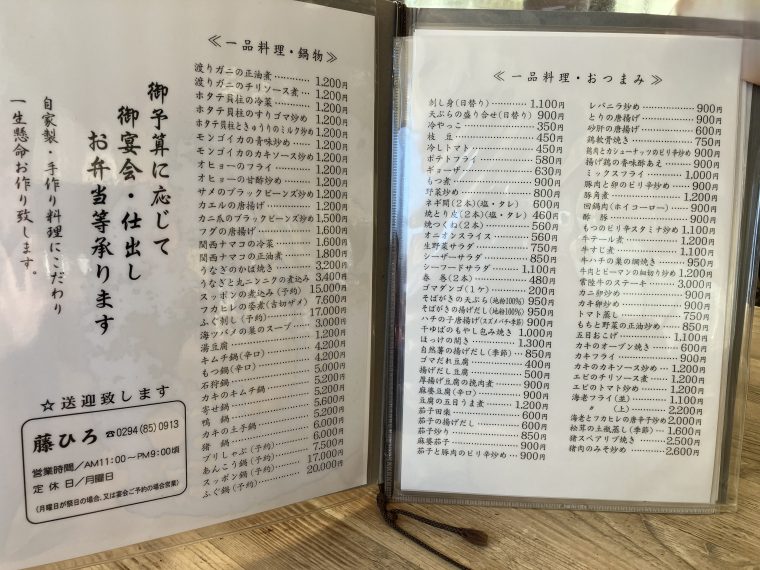 御予算に応じて
御宴会・仕出し
お弁当等承ります
自家製・手作り料理にこだわり
一生懸命お作り致します。
☆送迎致します
藤ひろ ☎0294(85)0913
営業時間/AM11:00〜PM9:00頃
定休日/月曜日
(月曜日が祭日の場合、又は宴会ご予約の場合営業)
≪一品料理・鍋物≫
渡りガニの正油煮…………1,200円
渡りガニのチリソース煮……1,200円
ホタテ貝柱の冷菜…………1,200円
ホタテ貝柱のすりゴマ炒め…1,200円
ホタテ貝柱ときゅうりのミルク炒め 1,200円
モンゴイカの青味炒め………1,200円
モンゴイカのカキソース炒め…1,200円
オヒョーのフライ…………1,200円
オヒョーの甘酢炒め………1,200円
サメのブラックビーンズ炒め…1,200円
カエルの唐揚げ…………1,200円
カニ爪のブラックビーンズ炒め 1,500円
フグの唐揚げ……………1,600円
関西ナマコの冷菜…………1,600円
関西ナマコの正油煮………1,800円
うなぎのかば焼き…………3,200円
うなぎと丸ニンニクの煮込み 3,400円
スッポンの煮込み(予約)……15,000円
フカヒレの姿煮(吉切ザメ)…7,600円
ふぐ刺し(予約)……………17,000円
海ツバメの巣のスープ………3,000円
湯豆腐…………………1,200円
キムチ鍋(辛口)……………4,200円
もつ鍋(辛口)………………4,200円
石狩鍋……………………5,200円
カキのキムチ鍋……………5,200円
寄せ鍋……………………5,200円
鴨 鍋……………………5,600円
カキの土手鍋………………6,000円
猪 鍋……………………6,000円
ブリしゃぶ(予約)…………7,500円
あんこう鍋(予約)…………17,000円
スッポン鍋(予約)…………17,000円
ふぐ鍋(予約)………………20,000円
≪一品料理・おつまみ≫
刺し身(日替り)……………1,100円
天ぷらの盛り合せ(日替り) 900円
冷やっこ…………………350円
枝 豆……………………450円
冷しトマト………………450円
ポテトフライ……………580円
ギョーザ…………………630円
もつ煮……………………600円
野菜炒め…………………800円
ネギ間(2本)(塩・タレ)…600円
焼とり皮(2本)(塩・タレ) 460円
焼つくね(2本)……………560円
オニオンスライス…………560円
生野菜サラダ………………750円
シーザーサラダ……………850円
シーフードサラダ…………1,100円
春 巻(2本)………………480円
ゴマダンゴ(1ケ)…………200円
そばがきの天ぷら(地粉100%) 950円
そばがきの揚げだし(地粉100%) 950円
ハチの子唐揚げ(スズメバチ季節) 900円
干ゆばのもやし包み焼き…1,000円
ほっけの開き………………1,300円
自然薯の揚げだし(季節)…850円
ゴマだれ豆腐………………400円
揚げだし豆腐………………500円
厚揚げ豆腐の挽肉煮………900円
麻婆豆腐(辛口)……………900円
豆腐の五目うま煮…………1,200円
茄子田楽…………………600円
茄子の揚げだし……………600円
茄子炒り…………………850円
麻婆茄子…………………900円
茄子と豚肉のピリ辛炒め…900円
レバニラ炒め………………900円
とりの唐揚げ………………900円
砂肝の唐揚げ………………600円
鶏軟骨焼き………………750円
鶏肉とカシューナッツのピリ辛炒め 900円
揚げ鶏の香味酢あえ………900円
ミックスフライ……………1,000円
豚肉と卵のピリ辛炒め……900円
豚角煮……………………1,200円
回鍋肉(ホイコーロー)……900円
酢 豚……………………900円
もつのピリ辛スタミナ炒め…900円
牛テール煮………………1,200円
牛すじ煮…………………1,100円
牛ハチの巣の網焼き………950円
牛肉とピーマンの細切り炒め 1,200円
常陸牛のステーキ…………3,000円
カニ卵炒め………………900円
カキ卵炒め………………900円
トマト蒸し………………750円
ももと野菜の正油炒め……850円
五目おこげ………………1,100円
カキのオーブン焼き………600円
カキフライ………………900円
カキのカキソース炒め……1,200円
エビのチリソース煮………1,200円
エビのトマト炒め…………1,200円
海老フライ(並)……………1,100円
〃 (上)……………2,200円
海老とフカヒレの唐辛子炒め 2,000円
松茸の土瓶蒸し(季節)……1,600円
猪スペアリブ焼き…………2,500円
猪肉のみそ炒め……………2,600円